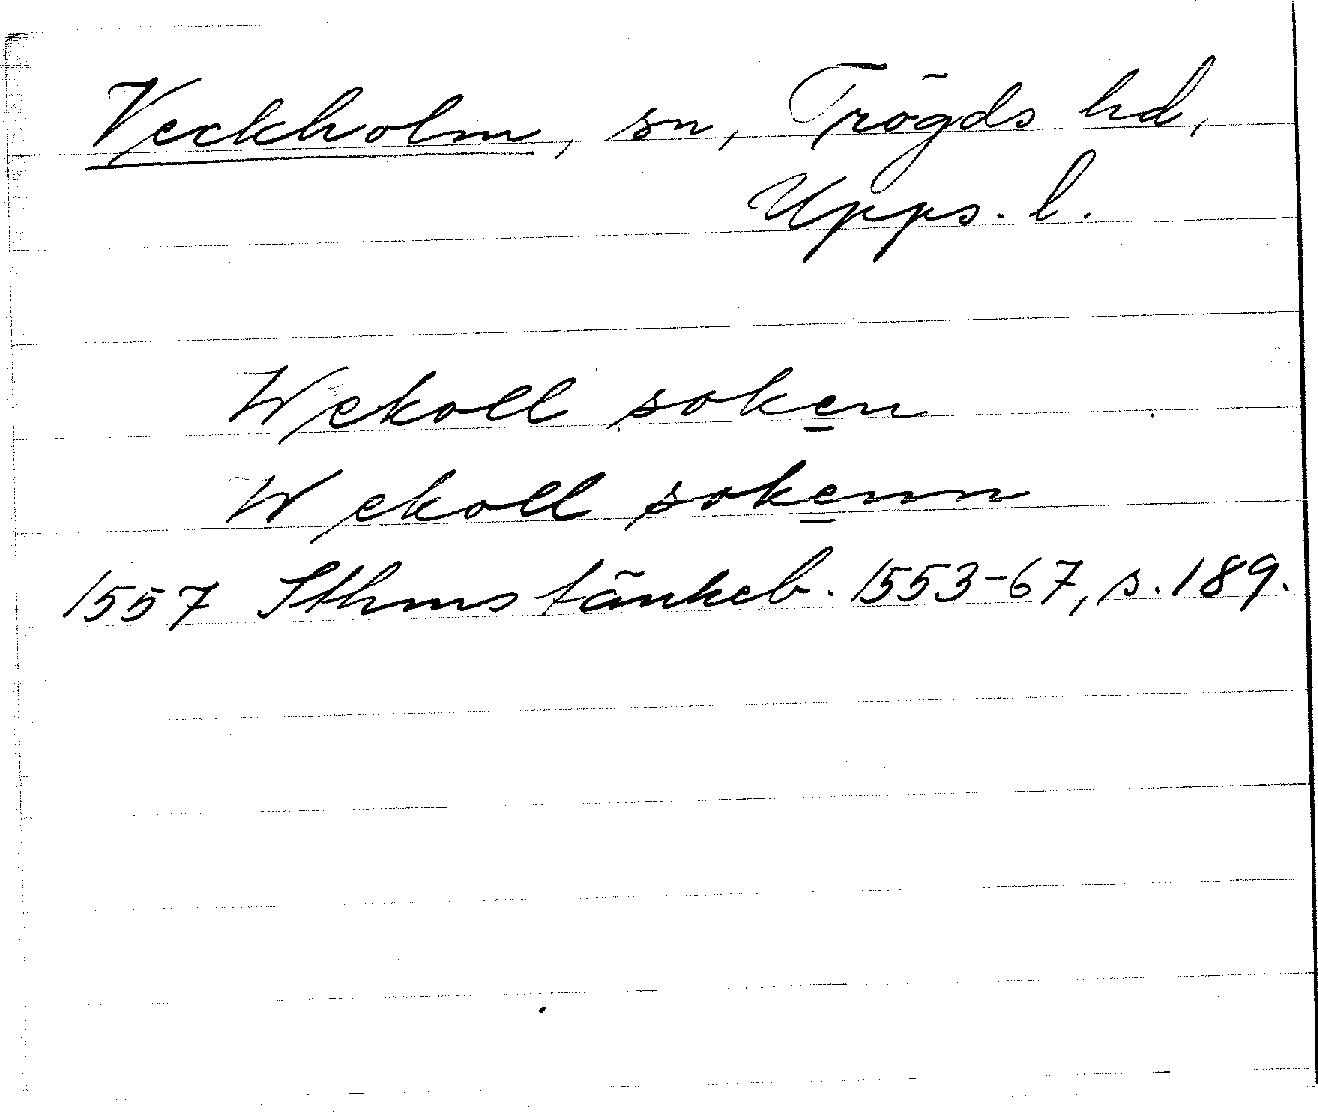 Veckholm, sn, Trögds hd,
Upps. l.
Wekoll soken
Wekoll sokenn
1557 Sthms tänkeb. 1553-67, s. 189.